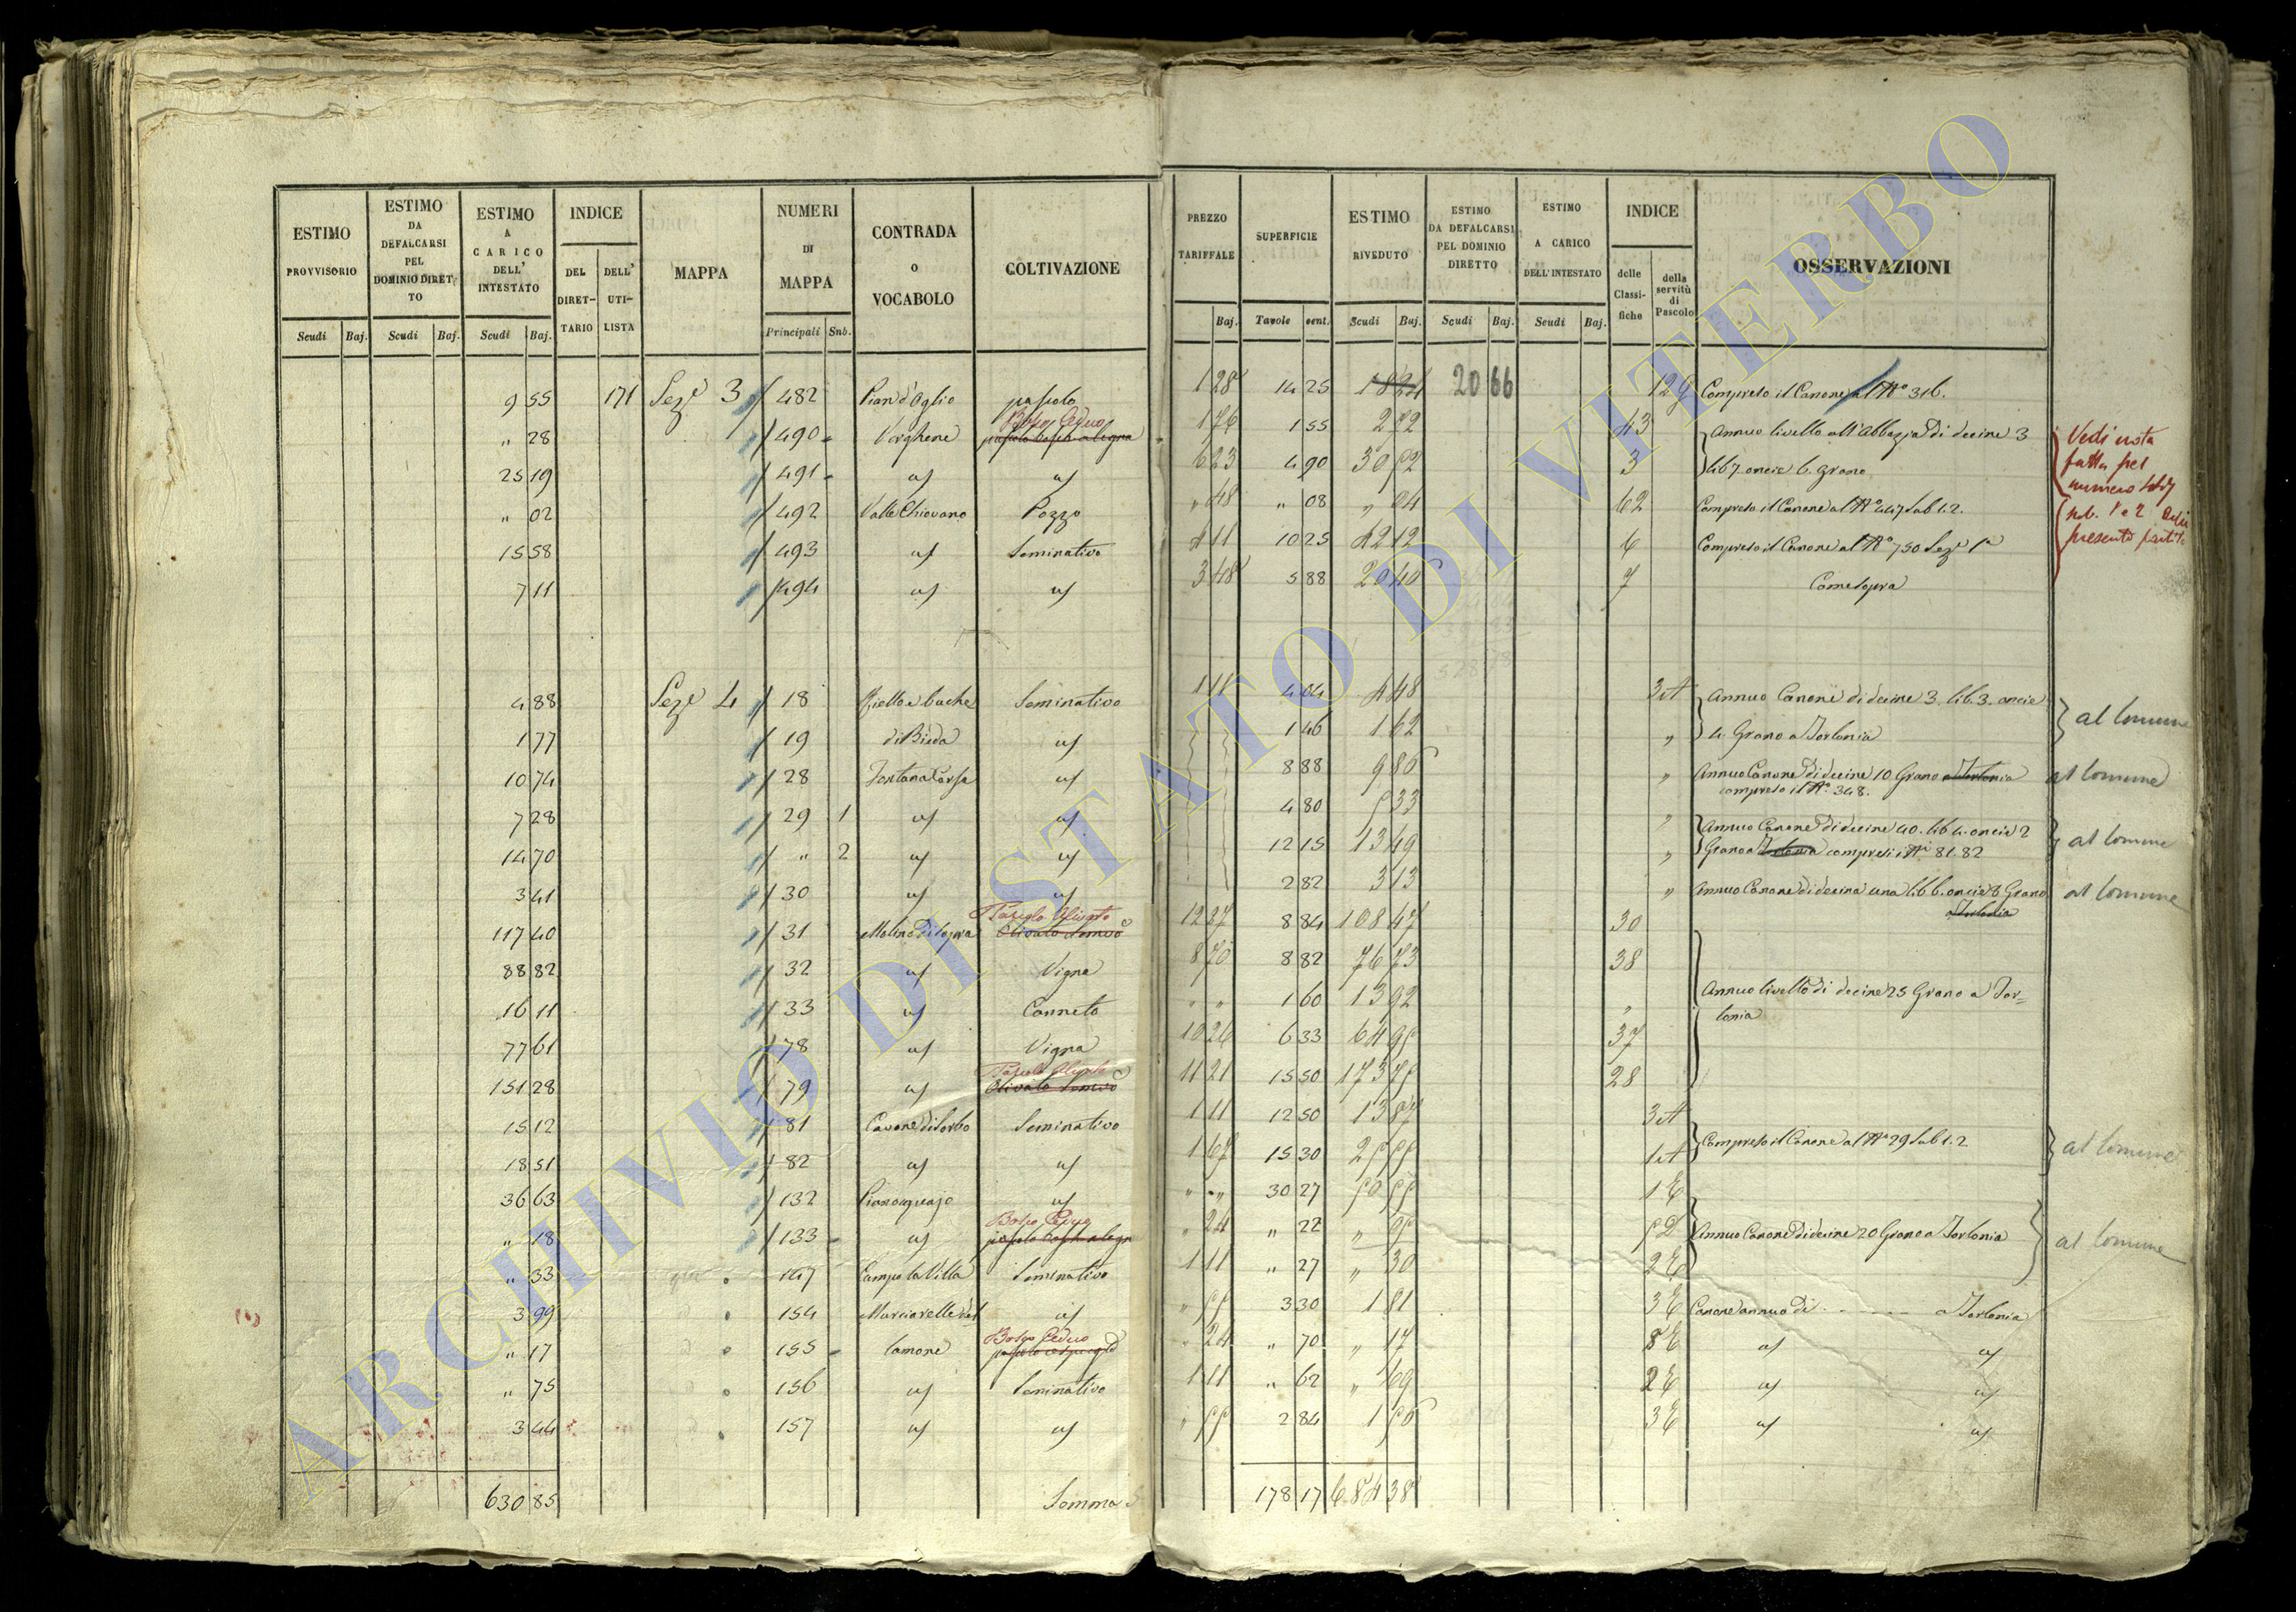 ESTIMO PROVVISORIO Scudi Baj. | ESTIMO DA DEFALCARSI PEL DOMINIO DIRETTO Scudi Baj. | ESTIMO A CARICO DELL' INTESTATO Scudi Baj. | INDICE DEL DIRETTARIO DELL' UTILISTA | MAPPA | NUMERI DI MAPPA Principali Snb. | CONTRADA O VOCABOLO | COLTIVAZIONE | PREZZO TARIFFALE Baj. | SUPERFICIE Tavole cent. | ESTIMO RIVEDUTO Scudi Baj. | ESTIMO DA DEFALCARSI PEL DOMINIO DIRETTO Scudi Baj. | ESTIMO A CARICO DELL'INTESTATO Scudi Baj. | INDICE delle Classifiche della servitù di Pascolo | OSSERVAZIONI
9 55 171 Sez.e 3 482 Pian d'Oglio pascolo 1 28 14 25 18 24 20 66 12 g Compreso il Canone al N° 316.
" 28 490 Verghene Bosco Ceduo 1 76 1 55 2 72 43 Annuo livello all'Abbazia di decine 3
25 19 491 " " 6 23 4 90 30 52 3 lib 7. oncie 6. grano
" 02 492 Valle Chiovano Pozzo " 48 " 08 " 04 62 Compreso il Canone al N° 447 Sub 1.2.
15 58 493 " Seminativo 4 11 10 25 42 12 6 Compreso il Canone al N° 750 Sez.e 1a
7 11 494 " " 3 48 5 88 20 40 7 Come sopra
Vedi nota
fatta pel
numero 447
sub. 1 e 2
presente partita
4 88 Sez.e 4 18 Seminativo 1 11 4 04 4 48 3 A Annuo Canone di decine 3. lib. 3. oncie
1 77 19 di Bieda " 1 46 1 62 " 4. Grano a Torlonia al Comune
10 74 28 Fontana Corsa " 8 88 9 86 " Annuo Canone di decine 10 Grano a Torlonia al Comune
compreso il N° 348.
7 28 29 1 " " 4 80 5 33 " Annuo Canone di decine 40. lib 4. oncie 2
14 70 " 2 " " 12 15 13 49 " Grano a Torlonia compresi i Ni 81. 82 al Comune
3 41 30 " " 2 82 3 13 " Annuo Canone di decina una lib 6. oncie 8 Grano al Comune
a Torlonia
117 40 31 Molino di sopra Pascolo Olivato 12 27 8 84 108 47 30
88 82 32 " Vigna 8 70 8 82 76 73 38
16 11 33 " Canneto " " 1 60 13 92 " Annuo livello di decine 25 Grano a Torlonia
77 61 78 " Vigna 10 26 6 33 64 95 37
151 28 79 " Pascolo Olivato 11 21 15 50 173 75 28
15 12 81 Cavone di Sorbo Seminativo 1 11 12 50 13 87 3 A
18 51 82 " " 1 67 15 30 25 55 1 A Compreso il Canone al N° 29 Sub 1.2 al Comune
36 63 132 " " " 30 27 50 55 1 E
" 18 133 " Bosco Ceduo " 24 " 22 " 05 5 D Annuo Canone di decine 20 Grano a Torlonia al Comune
" 33 147 Campo la Villa Seminativo 1 11 " 27 " 30 2 E
3 99 154 Marciarelle del " " 55 3 30 1 81 3 E Canone annuo di - - - - a Torlonia
" 17 155 Lamone Bosco Ceduo " 24 " 70 " 17 8 E " "
" 75 156 " Seminativo 1 11 " 62 " 69 2 E " "
3 44 157 " " " 55 2 84 1 56 3 E " "
630 85 Somma 178 17 684 38
ARCHIVIO DI STATO DI VITERBO